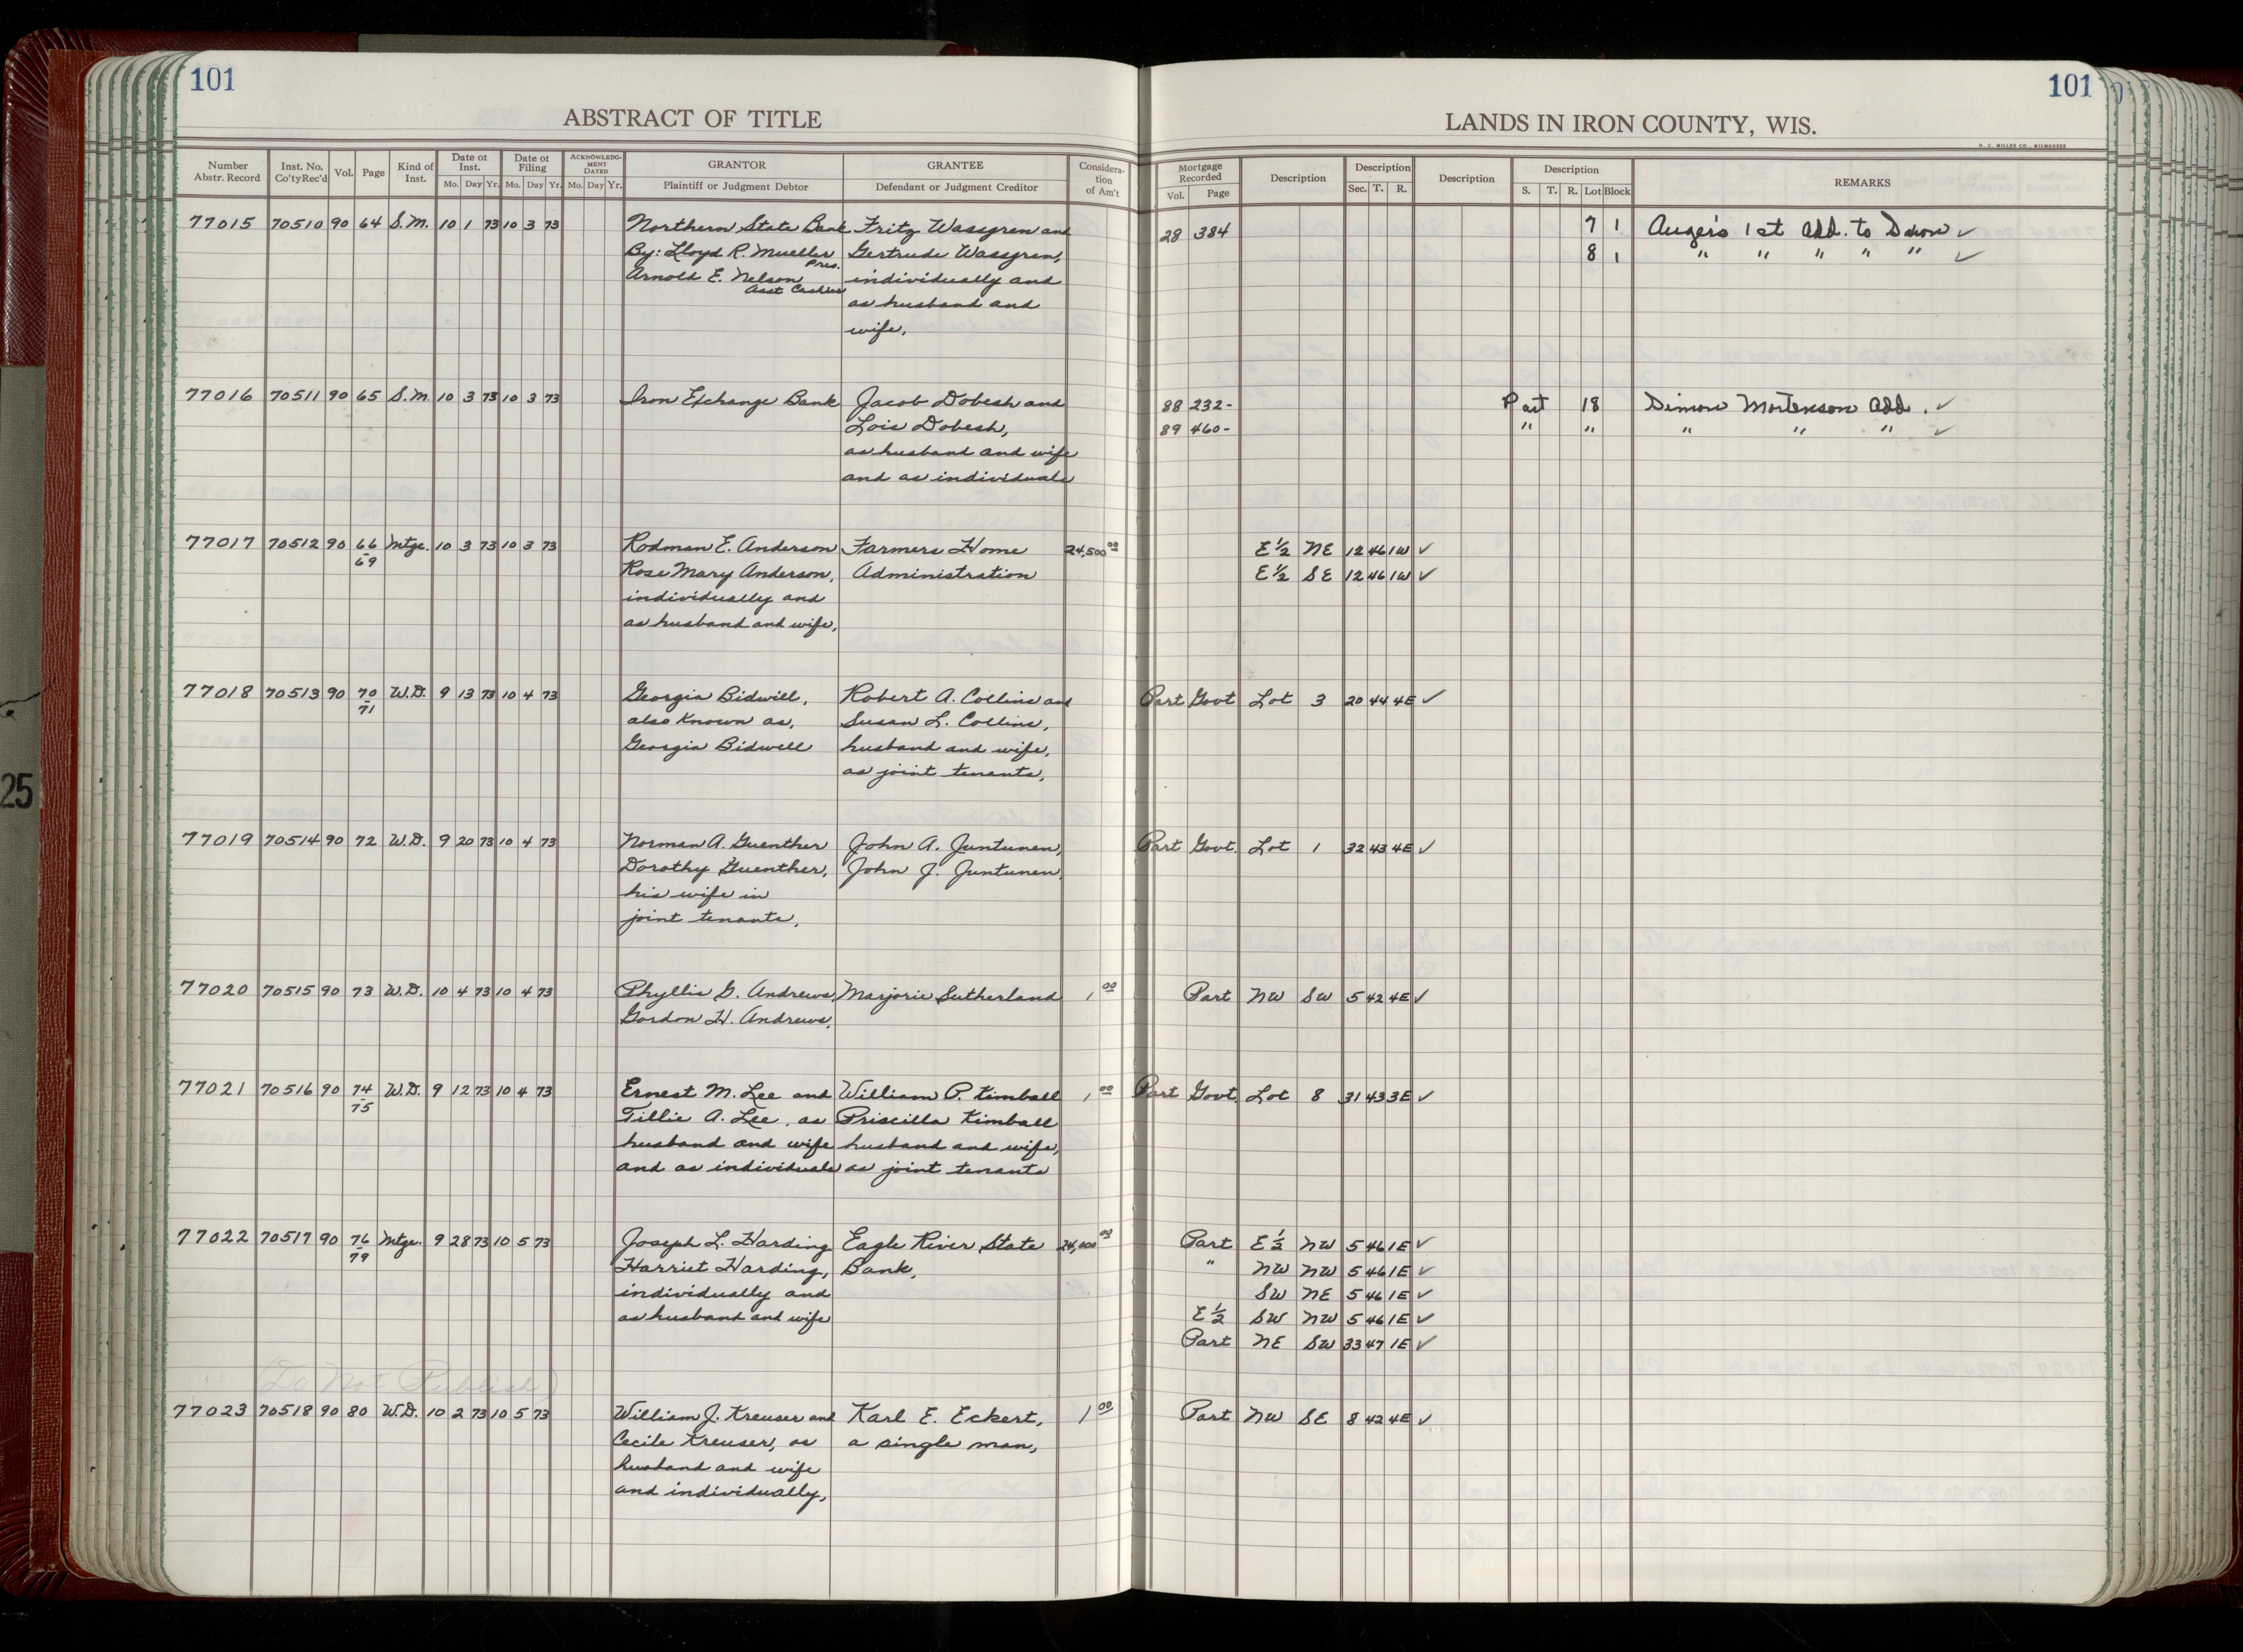 101
101
ABSTRACT OF TITLE
LANDS IN IRON COUNTY, WIS.
H. C. MILLER CO., MILWAUKEE
Number Abstr. Record | Inst. No. Co'ty Rec'd | Vol. | Page | Kind of Inst. | Date of Inst. Mo. Day Yr. | Date of Filing Mo. Day Yr. | ACKNOWLEDGMENT DATED Mo. Day Yr. | GRANTOR Plaintiff or Judgment Debtor | GRANTEE Defendant or Judgment Creditor | Consideration of Am't | Mortgage Recorded Vol. Page | Description | Description Sec. T. R. | Description | Description S. T. R. Lot Block | REMARKS
77015 70510 90 64 S.M. 10 1 73 10 3 73 Northern State Bank Fritz Wassgren and 28 384 7 1 Auger's 1st Add. to
By: Lloyd R. Mueller Pres. Gertrude Wassgren, 8 1 " " " " "
Arnold E. Nelson Asst Cashier individually and
as husband and
wife.
77016 70511 90 65 S.M. 10 3 73 10 3 73 Iron Exchange Bank Jacob Dobesh and 88 232- Part 18 Simon Mortenson Add. ✓
Lois Dobesh, 89 460- " " " " " ✓
as husband and wife
and as individuals
77017 70512 90 66-69 Mtge. 10 3 73 10 3 73 Rodman E. Anderson Farmers Home 24,500 00 E½ NE 12 46 1W ✓
Rose Mary Anderson, Administration E½ SE 12 46 1W ✓
individually and
as husband and wife,
77018 70513 90 70-71 W.D. 9 13 73 10 4 73 Georgia Bidwill, Robert A. Collins and Part Govt Lot 3 20 44 4E ✓
also known as, Susan L. Collins,
Georgia Bidwell husband and wife,
as joint tenants,
77019 70514 90 72 W.D. 9 20 73 10 4 73 Norman A. Guenther John A. Juntunen, Part Govt. Lot 1 32 43 4E ✓
Dorothy Guenther, John J. Juntunen,
his wife in
joint tenants,
77020 70515 90 73 W.D. 10 4 73 10 4 73 Phyllis G. Andrews, Marjorie Sutherland 1 00 Part NW SW 5 42 4E ✓
Gordon H. Andrews,
77021 70516 90 74-75 W.D. 9 12 73 10 4 73 Ernest M. Lee and William P. Kimball 1 00 Part Govt. Lot 8 31 43 3E ✓
Tillie A. Lee, as Priscilla Kimball
husband and wife husband and wife,
and as individuals as joint tenants
77022 70517 90 76-79 Mtge. 9 28 73 10 5 73 Joseph L. Harding Eagle River State 24,000 00 Part E½ NW 5 46 1E ✓
Harriet Harding, Bank, " NW NW 5 46 1E ✓
individually and SW NE 5 46 1E ✓
as husband and wife E½ SW NW 5 46 1E ✓
Part NE SW 33 47 1E ✓
(Do Not Publish)
77023 70518 90 80 W.D. 10 2 73 10 5 73 William J. Kreuser and Karl E. Eckert, 1 00 Part NW SE 8 42 4E ✓
Cecile Kreuser, as a single man,
husband and wife
and individually,
25